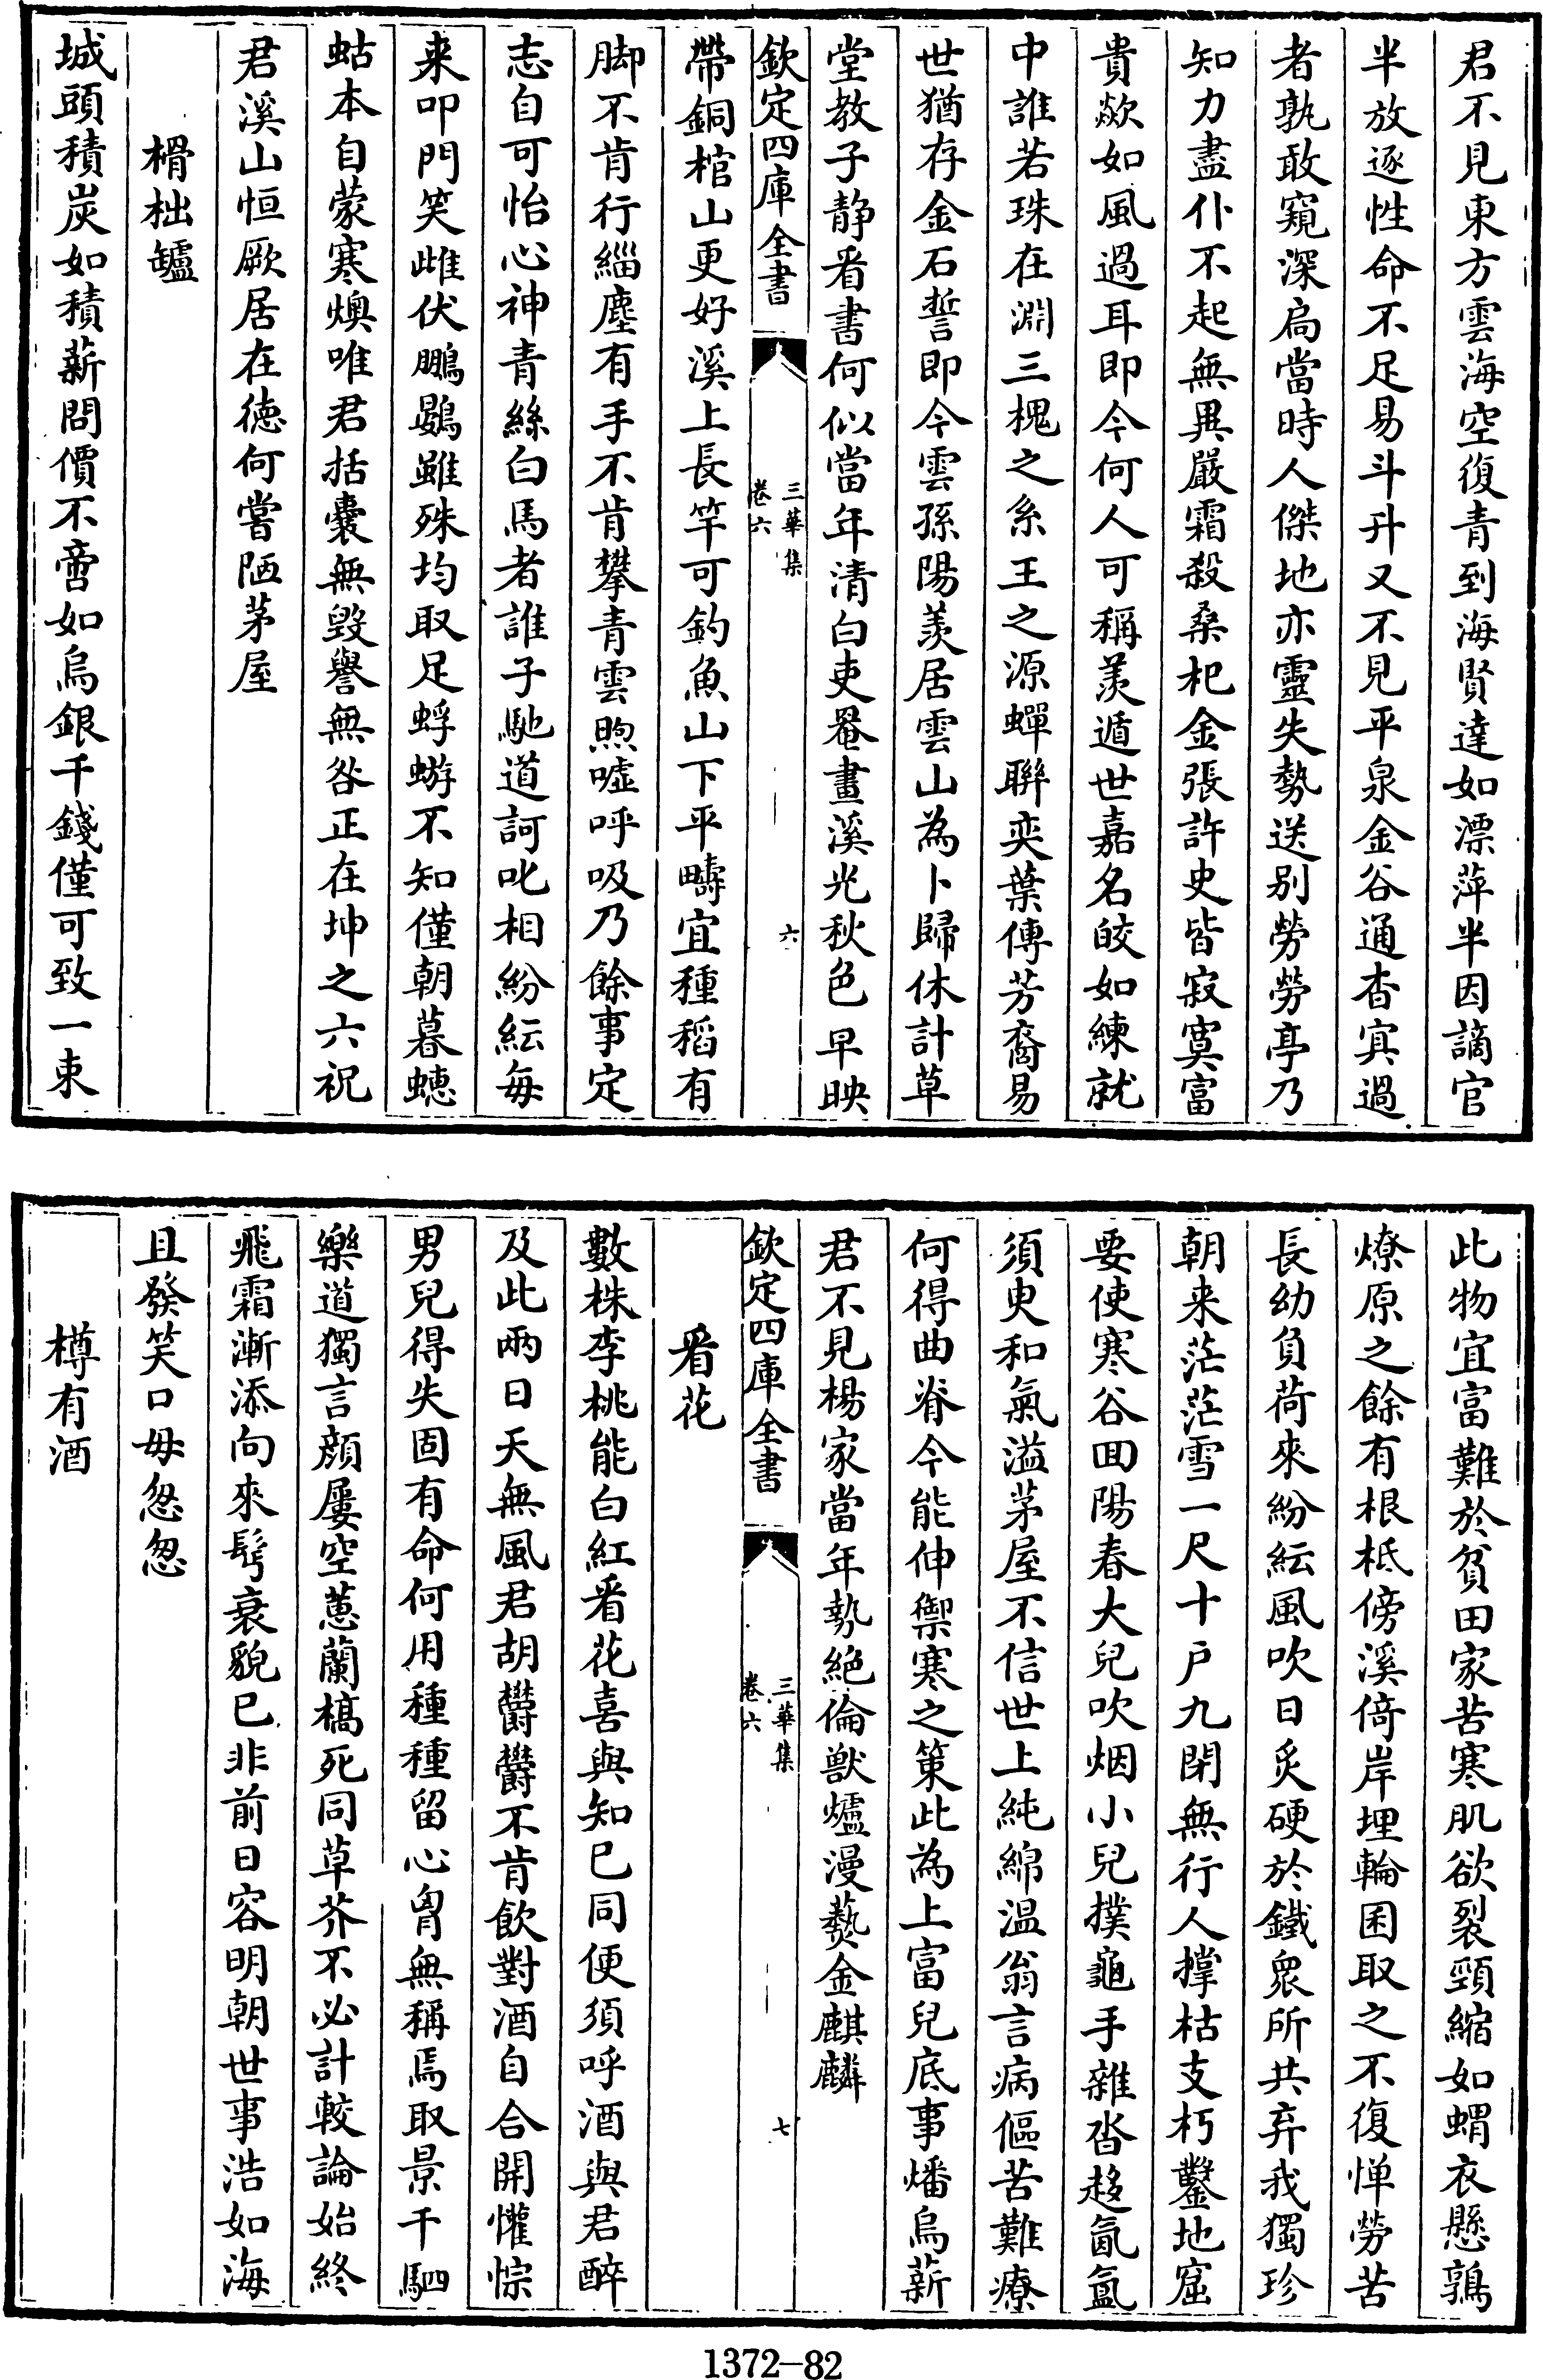 君不見東方雲海空復青到海賢達如漂萍半因謫官
半放逐性命不足易斗升又不見平泉金谷通杳㝠過
者孰敢窺深扃當時人傑地亦靈失勢送别勞勞亭乃
知力盡仆不起無異嚴霜殺桑杞金張許史皆寂寞富
貴歘如風過耳即今何人可稱羨遁世嘉名皎如練就
中誰若珠在淵三槐之系王之源蟬聯奕葉傳芳裔易
世猶存金石誓即今雲孫陽羨居雲山為卜歸休計草
堂教子静看書何似當年清白吏罨畫溪光秋色早映
欽定四庫全書
三華集
卷六
六
帶銅棺山更好溪上長竿可釣魚山下平疇宜種稻有
脚不肯行緇塵有手不肯攀青雲煦嘘呼吸乃餘事定
志自可怡心神青絲白馬者誰子馳道訶叱相紛紜毎
来叩門笑雌伏鵬鷃雖殊均取足蜉蝣不知僅朝暮蟪
蛄本自蒙寒燠唯君括囊無毁譽無咎正在坤之六祝
君溪山恒厥居在徳何嘗陋茅屋
榾柮罏
城頭積炭如積薪問價不啻如烏銀千錢僅可致一束
此物宜富難於貧田家苦寒肌欲裂頸縮如蝟衣懸鶉
燎原之餘有根柢傍溪倚岸埋輪囷取之不復憚勞苦
長幼負荷來紛紜風吹日炙硬於鐵衆所共弃我獨珍
朝来茫茫雪一尺十户九閉無行人撑枯支朽鑿地窟
要使寒谷回陽春大兒吹烟小兒撲龜手雜沓趍氤氲
須臾和氣溢茅屋不信世上純綿温翁言病傴苦難療
何得曲脊今能伸禦寒之策此為上富兒底事燔烏薪
君不見楊家當年勢絶倫獸爐漫爇金麒麟
欽定四庫全書
三華集
卷六
七
看花
數株李桃能白紅看花喜與知已同便須呼酒與君醉
及此兩日天無風君胡欝欝不肯飲對酒自合開懽悰
男兒得失固有命何用種種留心胷無稱焉取景千駟
樂道獨言顔屢空蕙蘭槁死同草芥不必計較論始終
飛霜漸添向來髩衰貌已非前日容明朝世事浩如海
且發笑口毋怱怱
樽有酒
1372-82